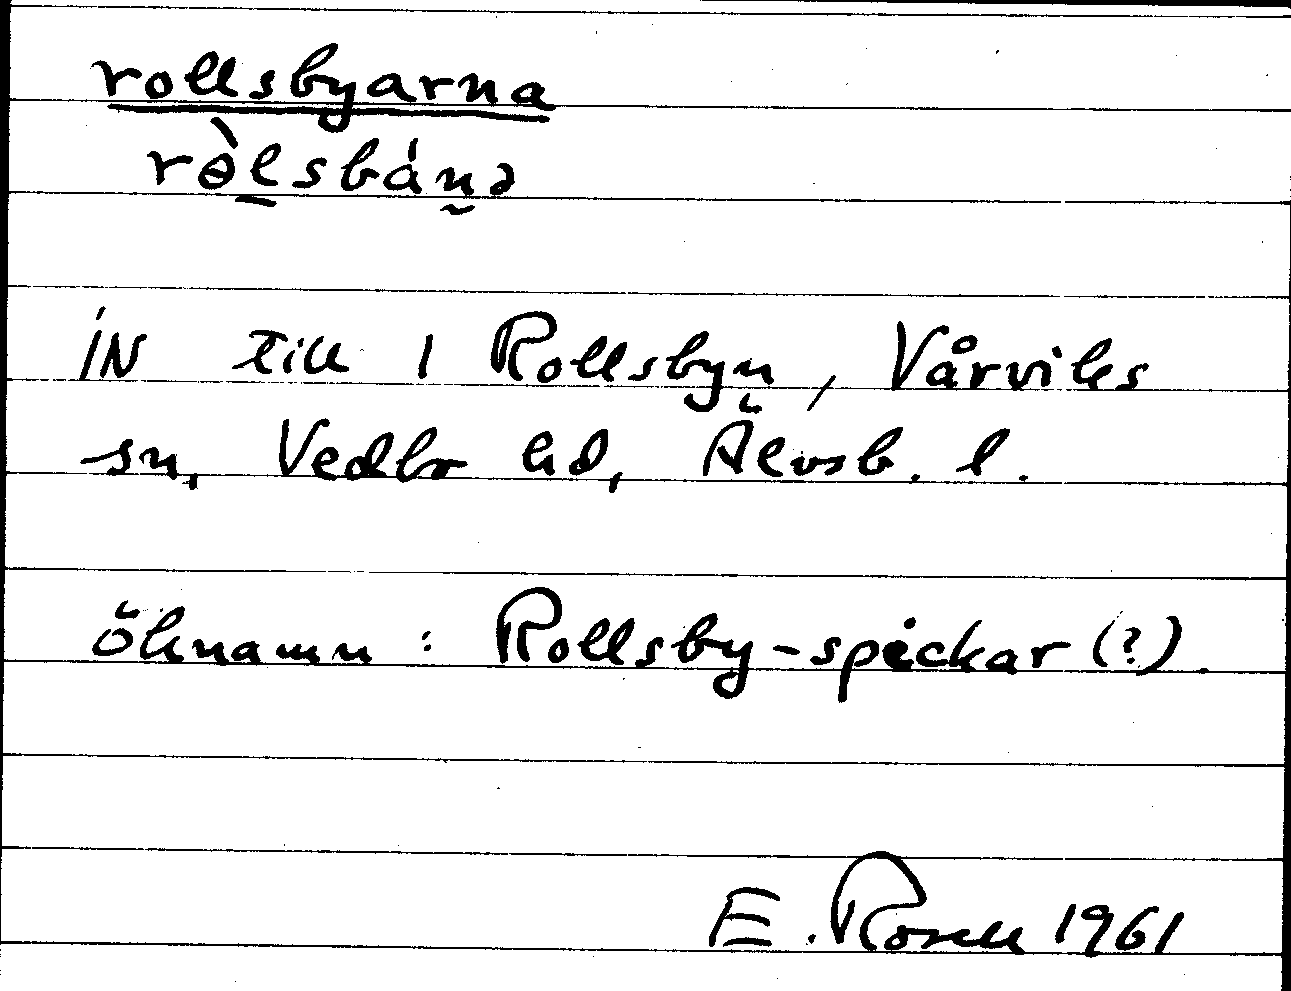 rollsbyarna
rɵ̀l̠sbána̰
IN till 1 Rollsbyn, Vårviks
sn, Vedbo hd, Älvsb. l.
öknamn : Rollsby-spickar (?).
E. Rosell 1961